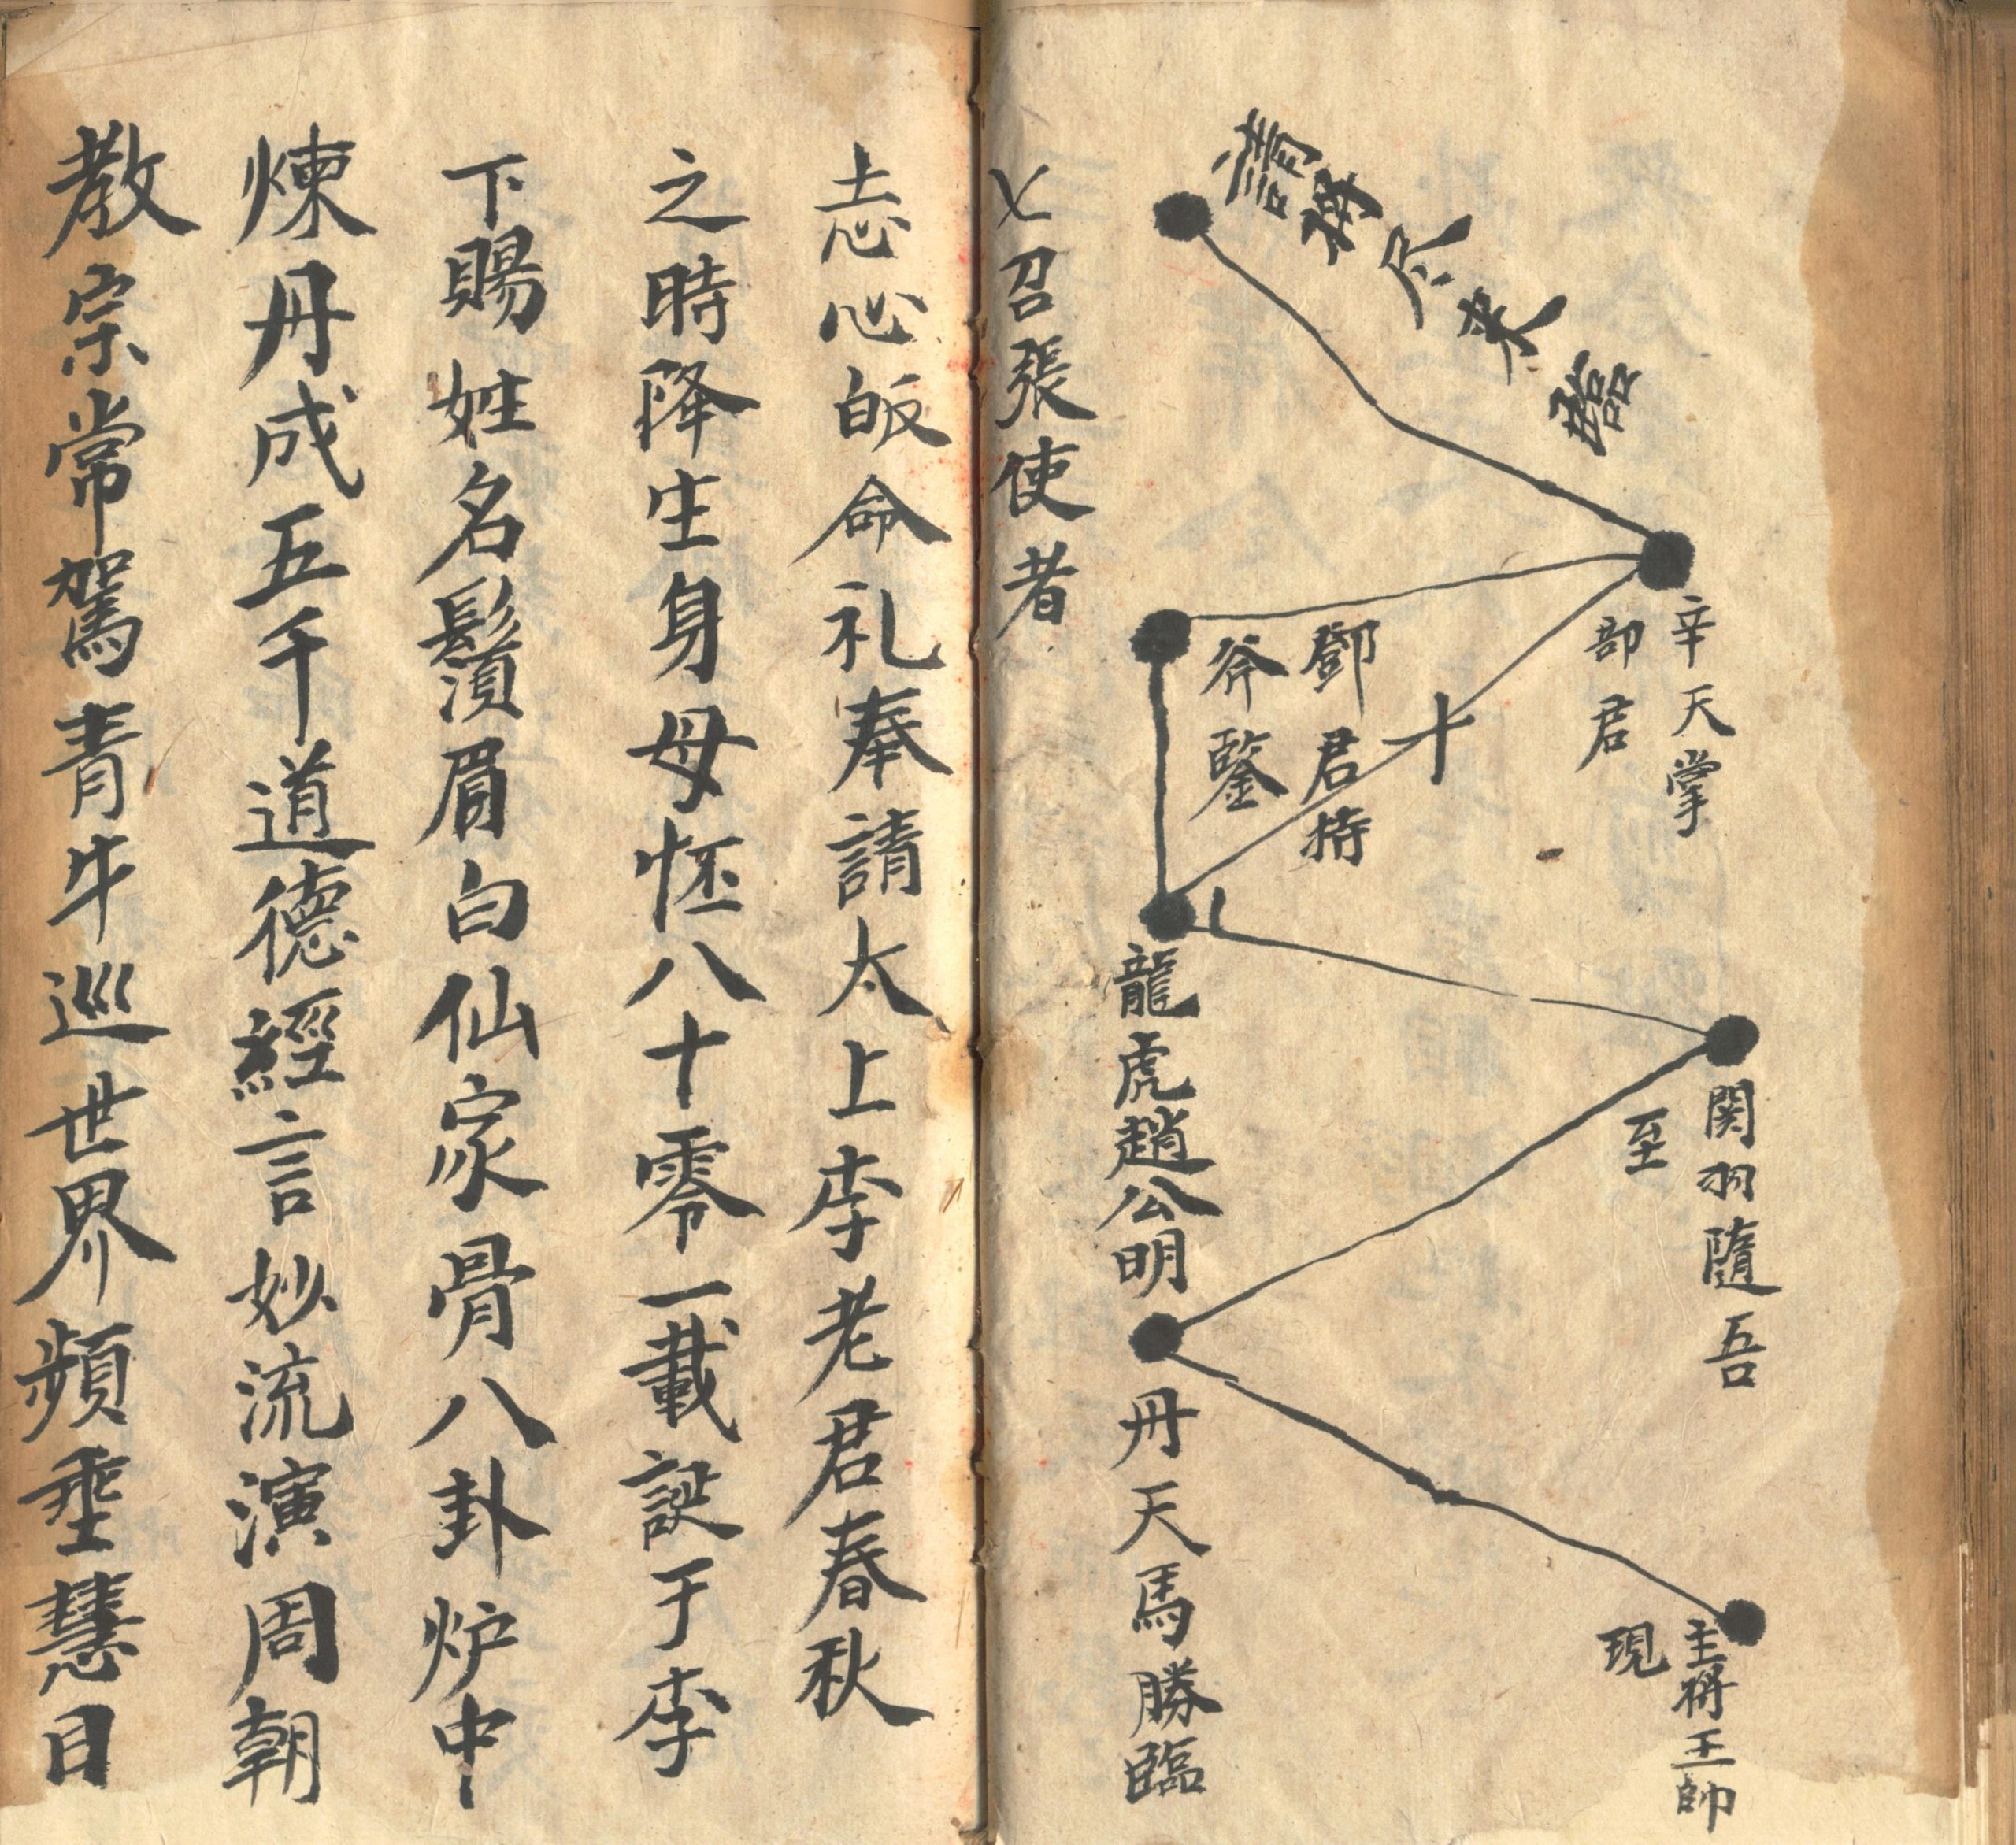 請将尒来臨
辛天掌
部君
鄧君持
斧鑿
関羽隨吾
至
主将王帥
現
龍虎趙公明
丹天馬勝臨
七召張使者
志心皈命礼奉請太上李老君春秋
之時降生身母怌八十零一載誕于李
下賜姓名鬚眉白仙家骨八卦炉中
煉丹成五千道德經言妙流演周朝
教宗常駕青牛巡世界頻垂慧目